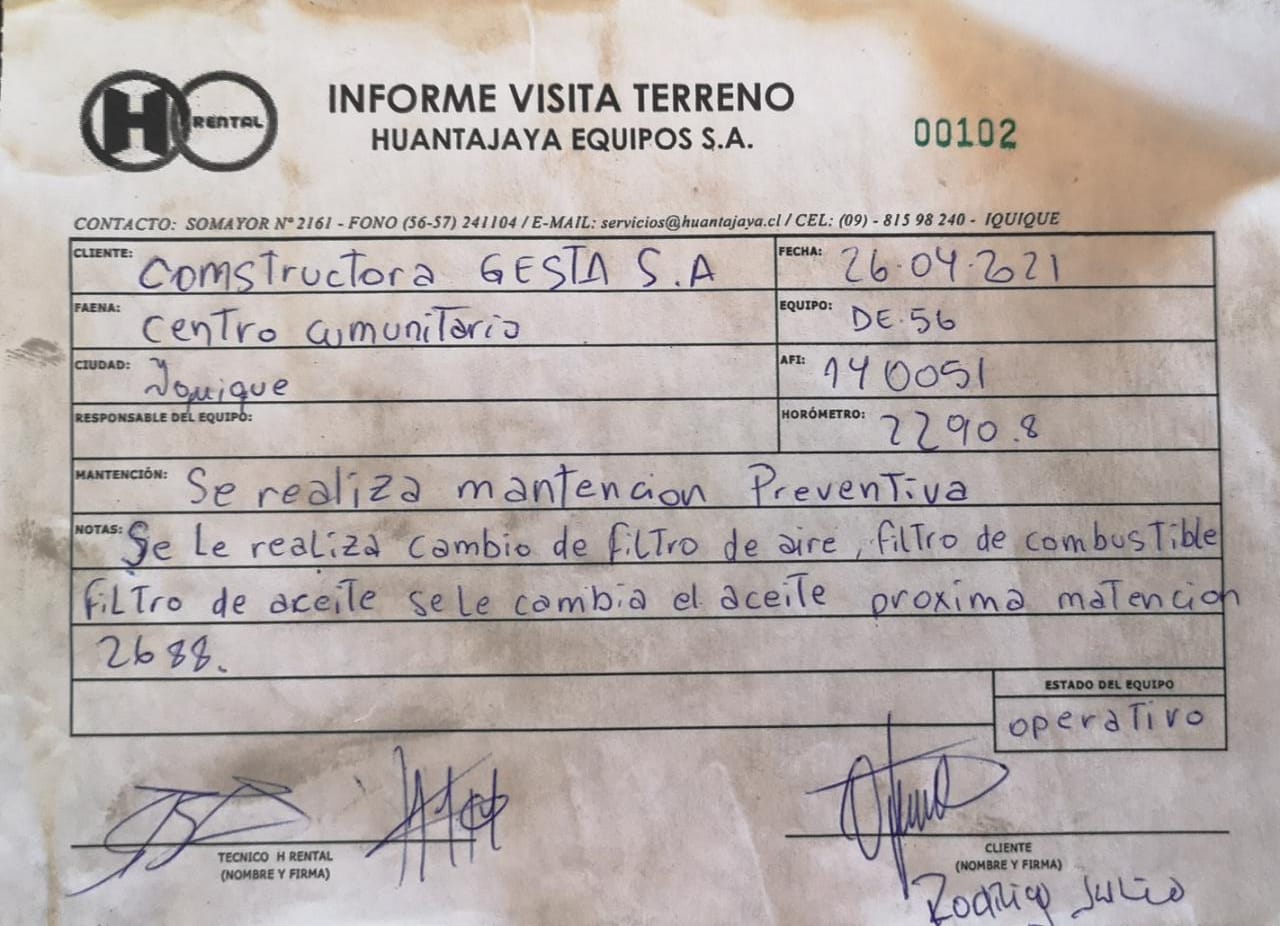 H RENTAL
INFORME VISITA TERRENO
HUANTAJAYA EQUIPOS S.A.
00102
CONTACTO: SOMAYOR N° 2161 - FONO (56-57) 241104 / E-MAIL: servicios@huantajaya.cl / CEL: (09) - 815 98 240 - IQUIQUE
CLIENTE: Comstructora GESTA S.A
FECHA: 26.04.2021
FAENA: Centro cumunitario
EQUIPO: DE.56
CIUDAD: Iquique
AFI: 140051
RESPONSABLE DEL EQUIPO:
HORÓMETRO: 2290.8
MANTENCIÓN: Se realiza mantencion Preventiva
NOTAS: Se Le realiza cambio de filtro de aire, filtro de combustible
filtro de aceite se le cambia el aceite proxima matencion
2688.
ESTADO DEL EQUIPO
operativo
TECNICO H RENTAL
(NOMBRE Y FIRMA)
CLIENTE
(NOMBRE Y FIRMA)
Rodrigo Julio